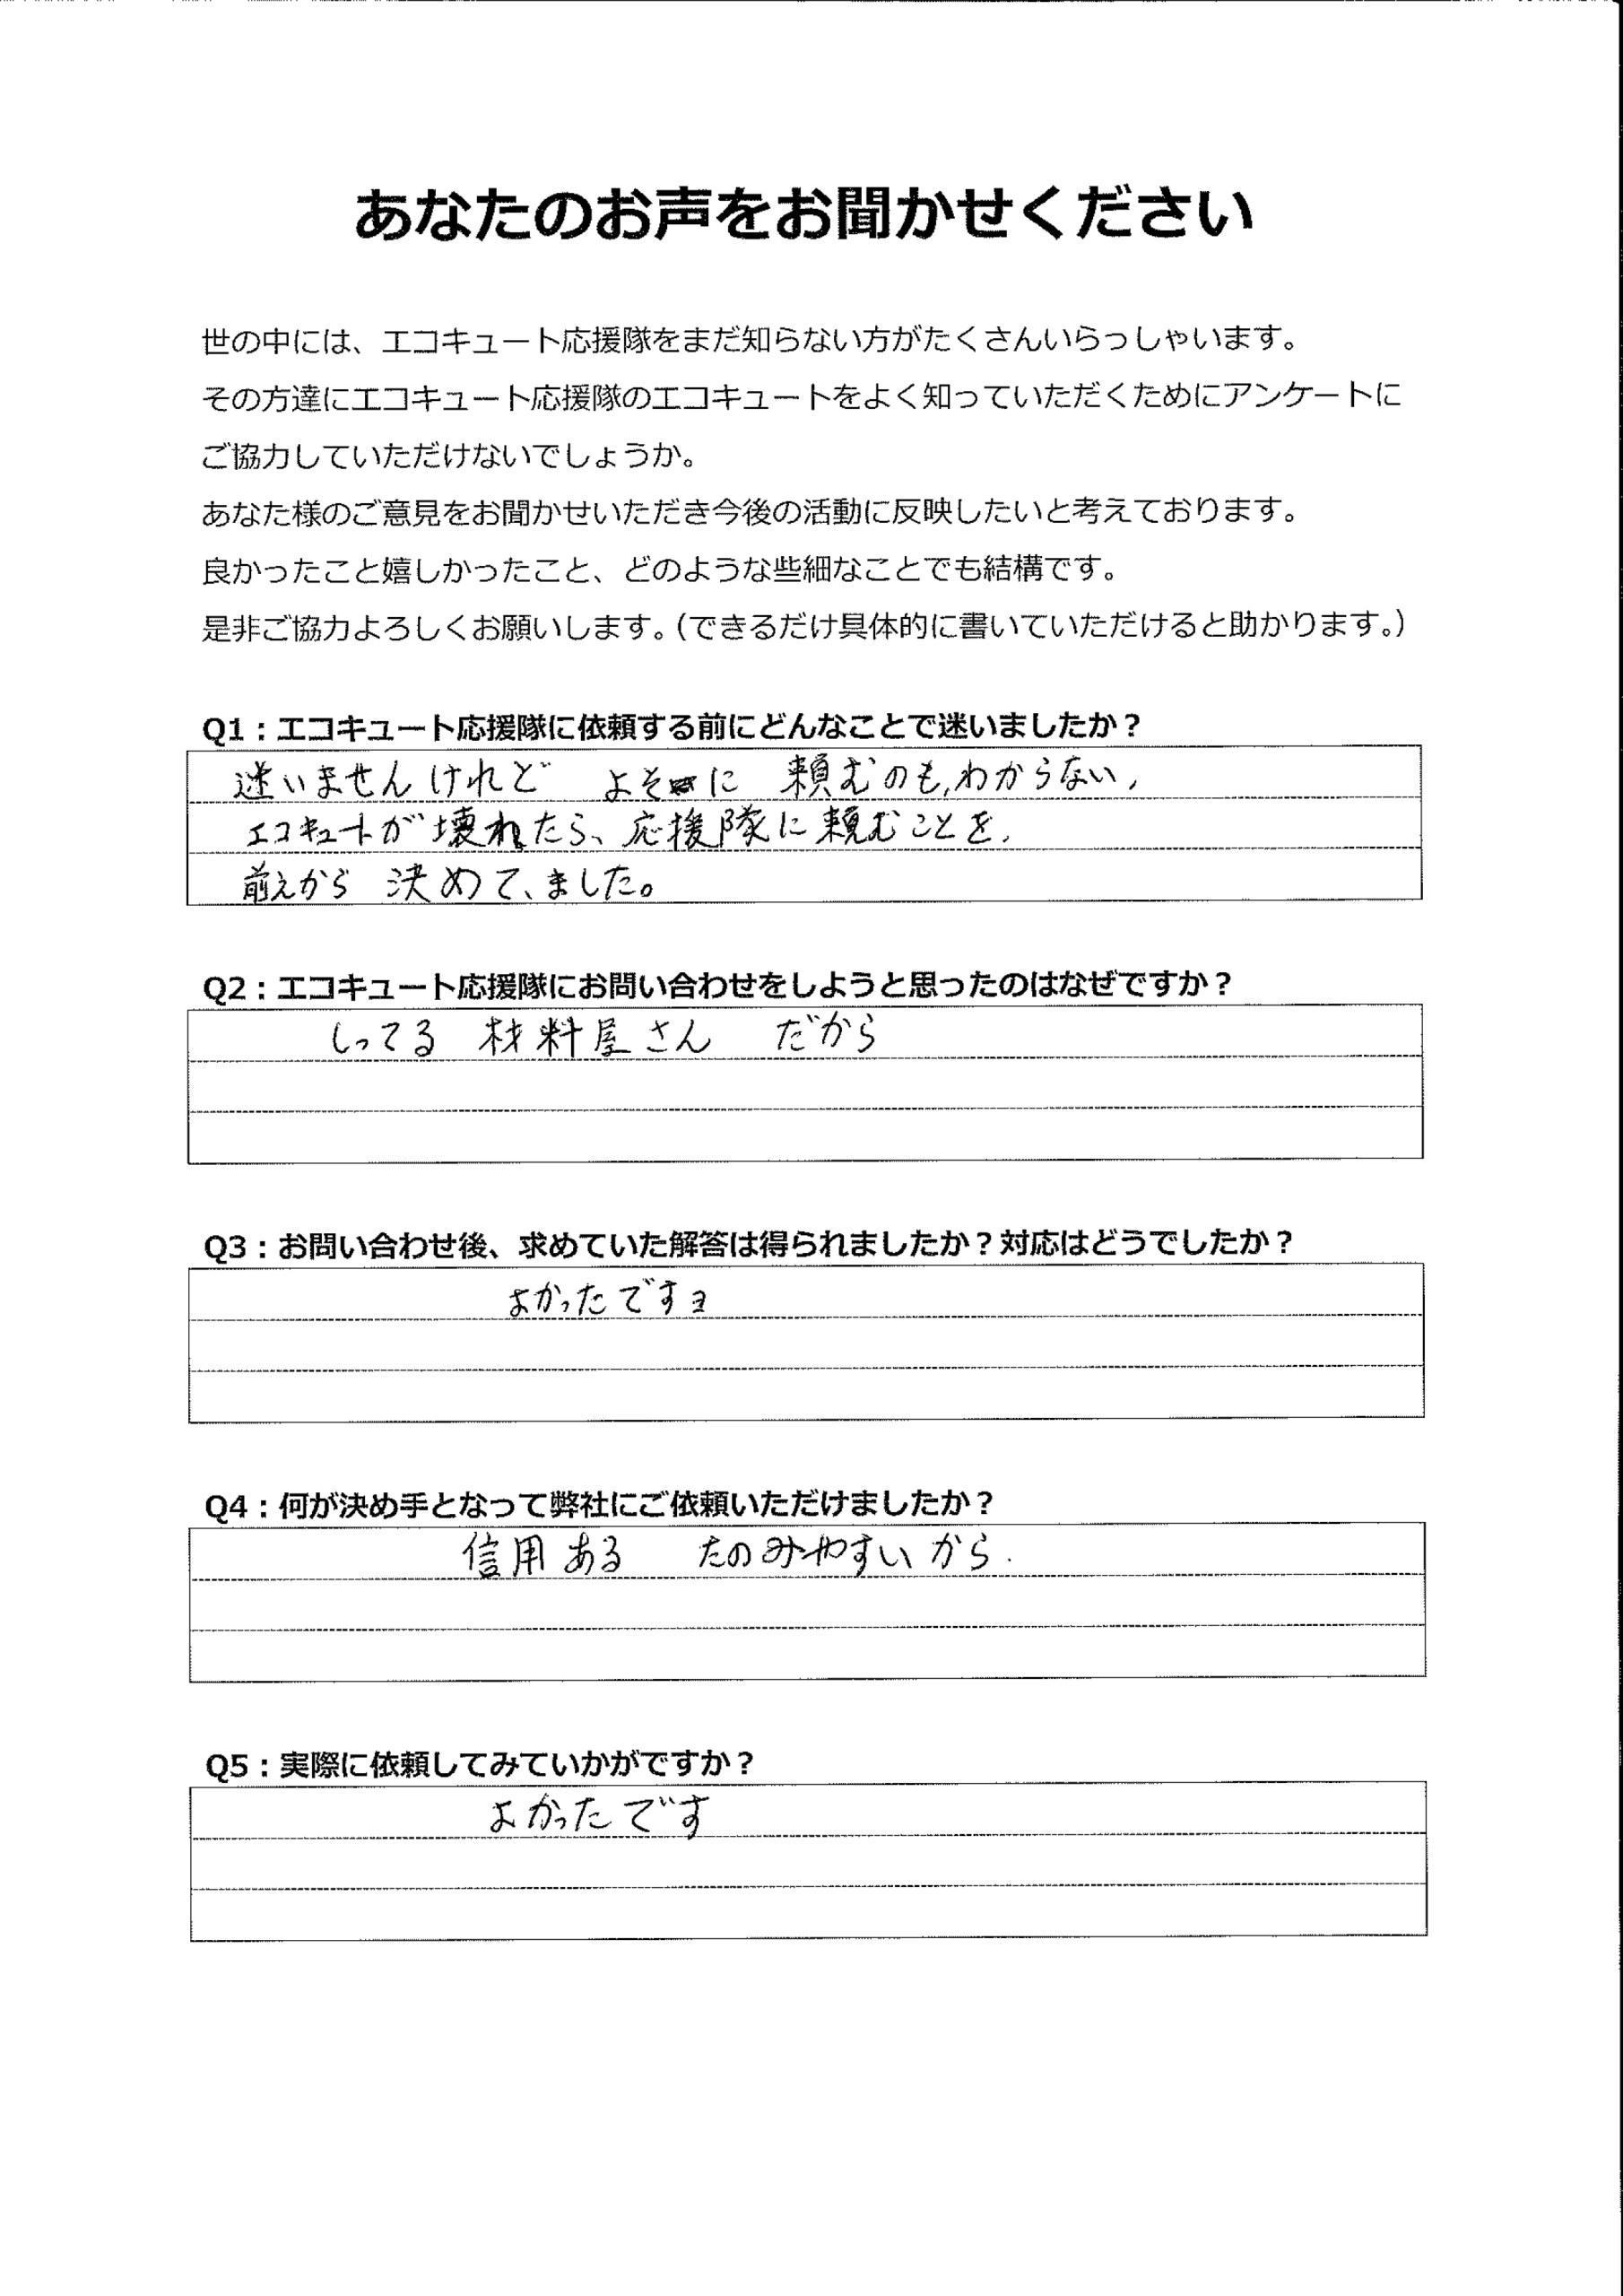 あなたのお声をお聞かせください
世の中には、エコキュート応援隊をまだ知らない方がたくさんいらっしゃいます。
その方達にエコキュート応援隊のエコキュートをよく知っていただくためにアンケートに
ご協力していただけないでしょうか。
あなた様のご意見をお聞かせいただき今後の活動に反映したいと考えております。
良かったこと嬉しかったこと、どのような些細なことでも結構です。
是非ご協力よろしくお願いします。（できるだけ具体的に書いていただけると助かります。）
Q1：エコキュート応援隊に依頼する前にどんなことで迷いましたか？
迷いませんけれど よそに 頼むのも、わからない、
エコキュートが壊れたら、応援隊に頼むことを、
前えから 決めて、ました。
Q2：エコキュート応援隊にお問い合わせをしようと思ったのはなぜですか？
しってる 材料屋さん だから
Q3：お問い合わせ後、求めていた解答は得られましたか？対応はどうでしたか？
よかったですヨ
Q4：何が決め手となって弊社にご依頼いただけましたか？
信用ある たのみやすいから.
Q5：実際に依頼してみていかがですか？
よかったです